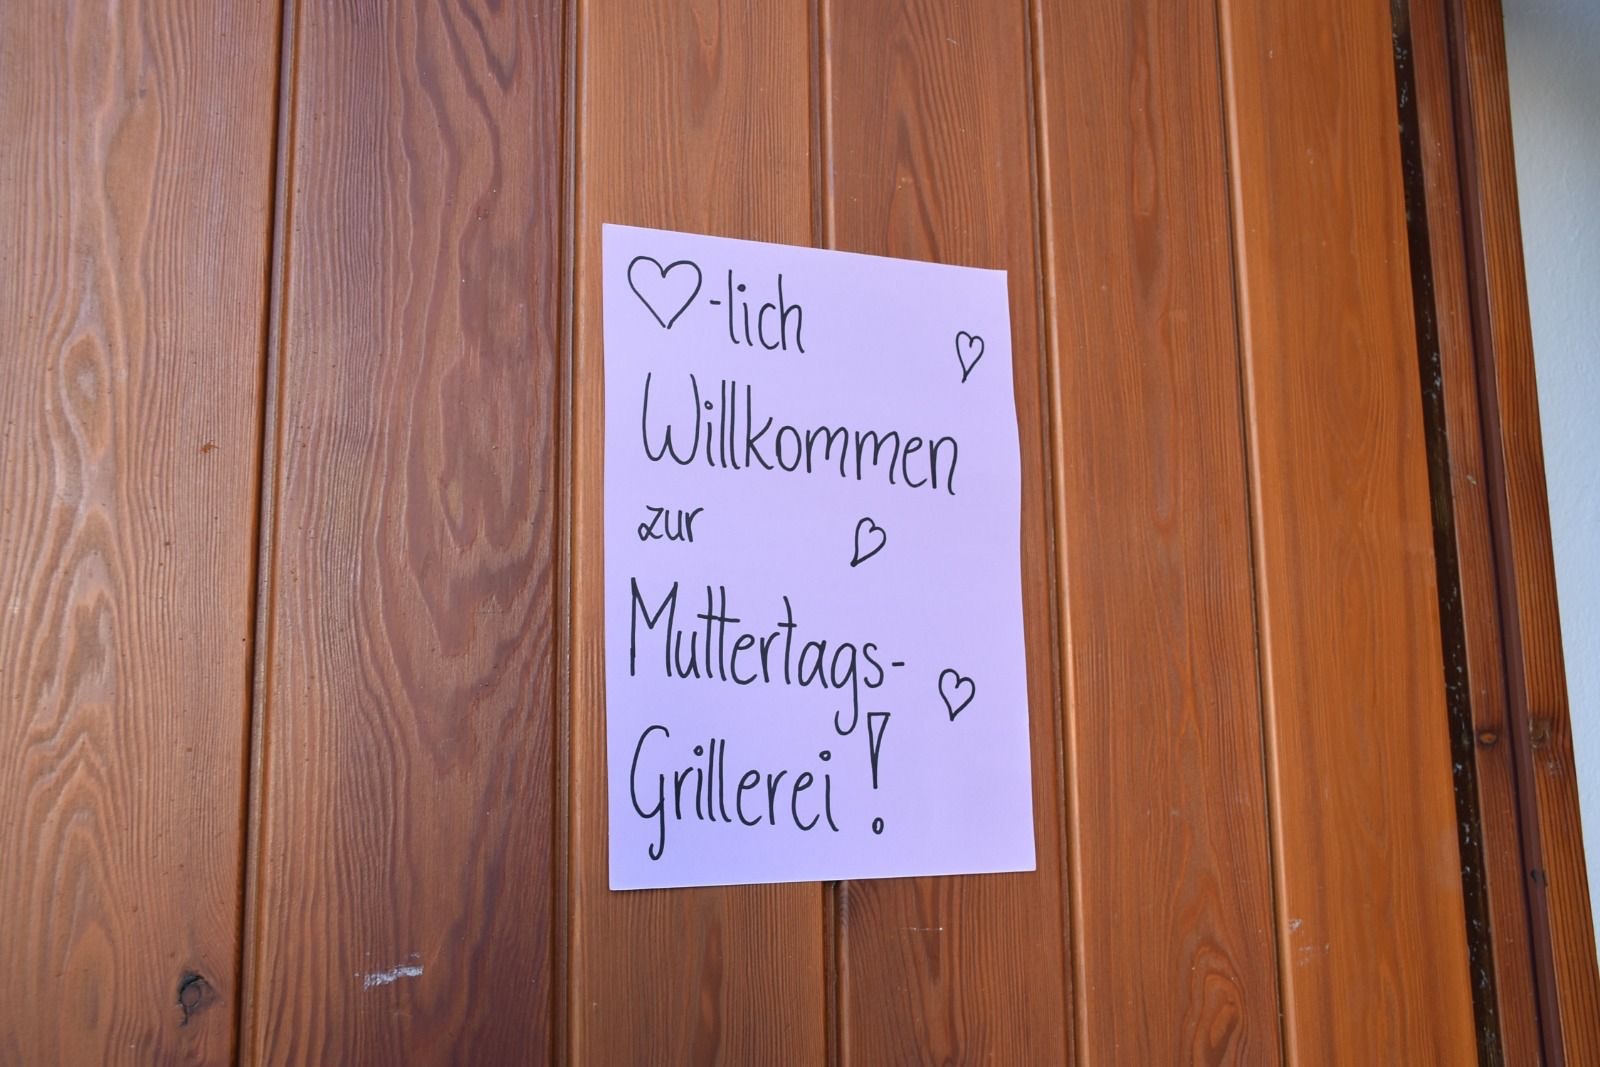 ♡-lich
Willkommen
zur
Muttertags-
Grillerei!